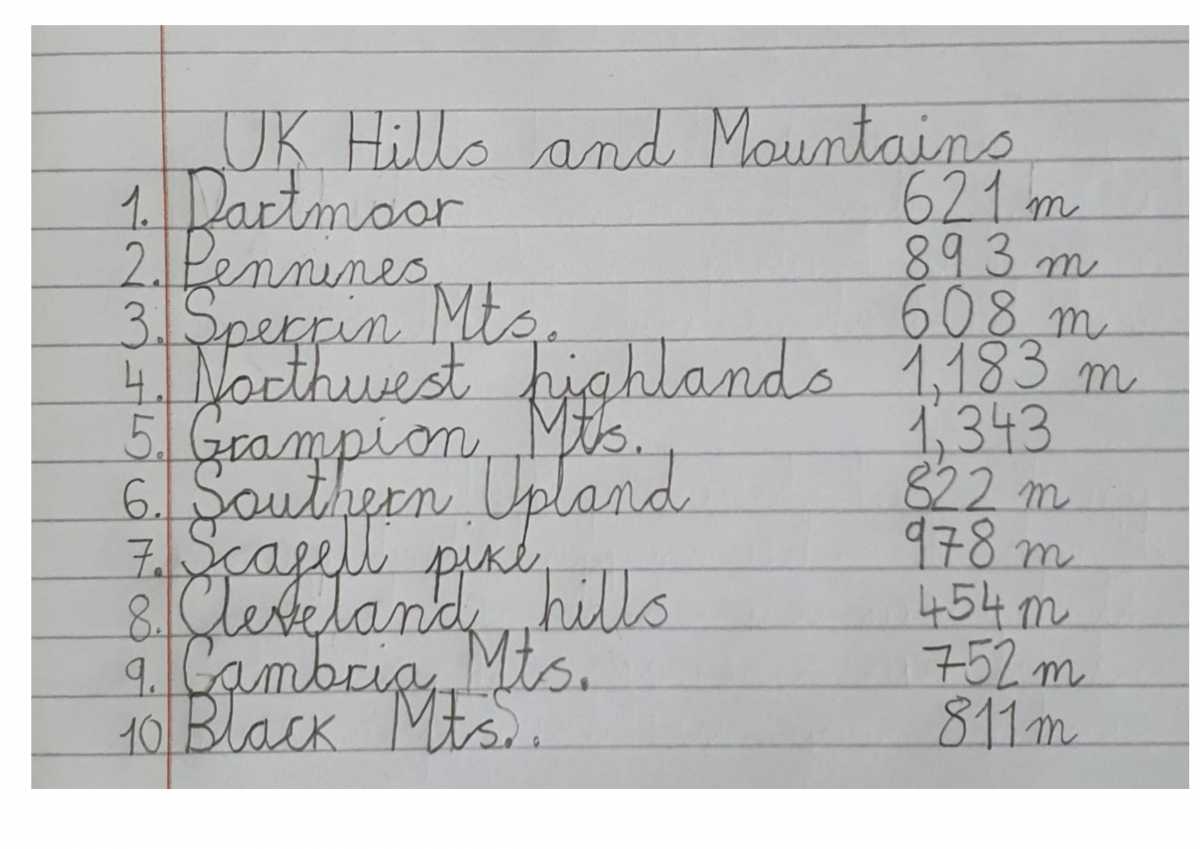 UK Hills and Mountains
1. Dartmoor 621 m
2. Pennines 893 m
3. Sperrin Mts. 608 m
4. Northwest highlands 1,183 m
5. Grampion Mts. 1,343
6. Southern Upland 822 m
7. Scafell pike 978 m
8. Cleveland hills 454 m
9. Cambria Mts. 752 m
10 Black Mts. 811 m